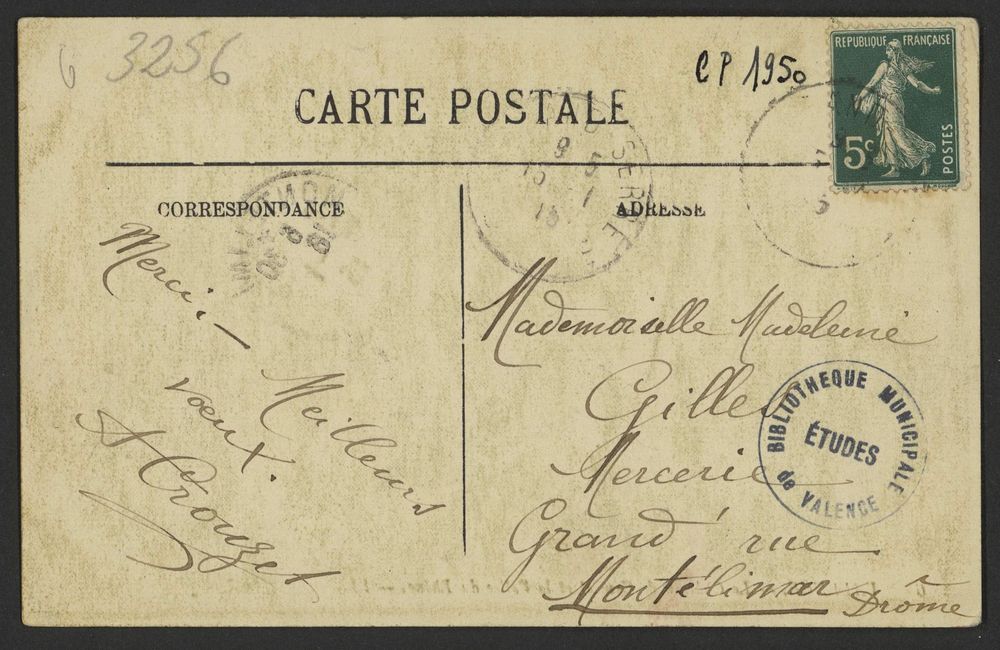 6 3256
CP 1950
REPUBLIQUE FRANÇAISE
5c
POSTES
CARTE POSTALE
CORRESPONDANCE
ADRESSE
Merci. — Meilleurs
voeux.
Crouzet
Mademoiselle Madeleine
Gilles
Mercerie
Grand' rue
Montélimar Drôme
BIBLIOTHEQUE MUNICIPALE
ÉTUDES
de VALENCE